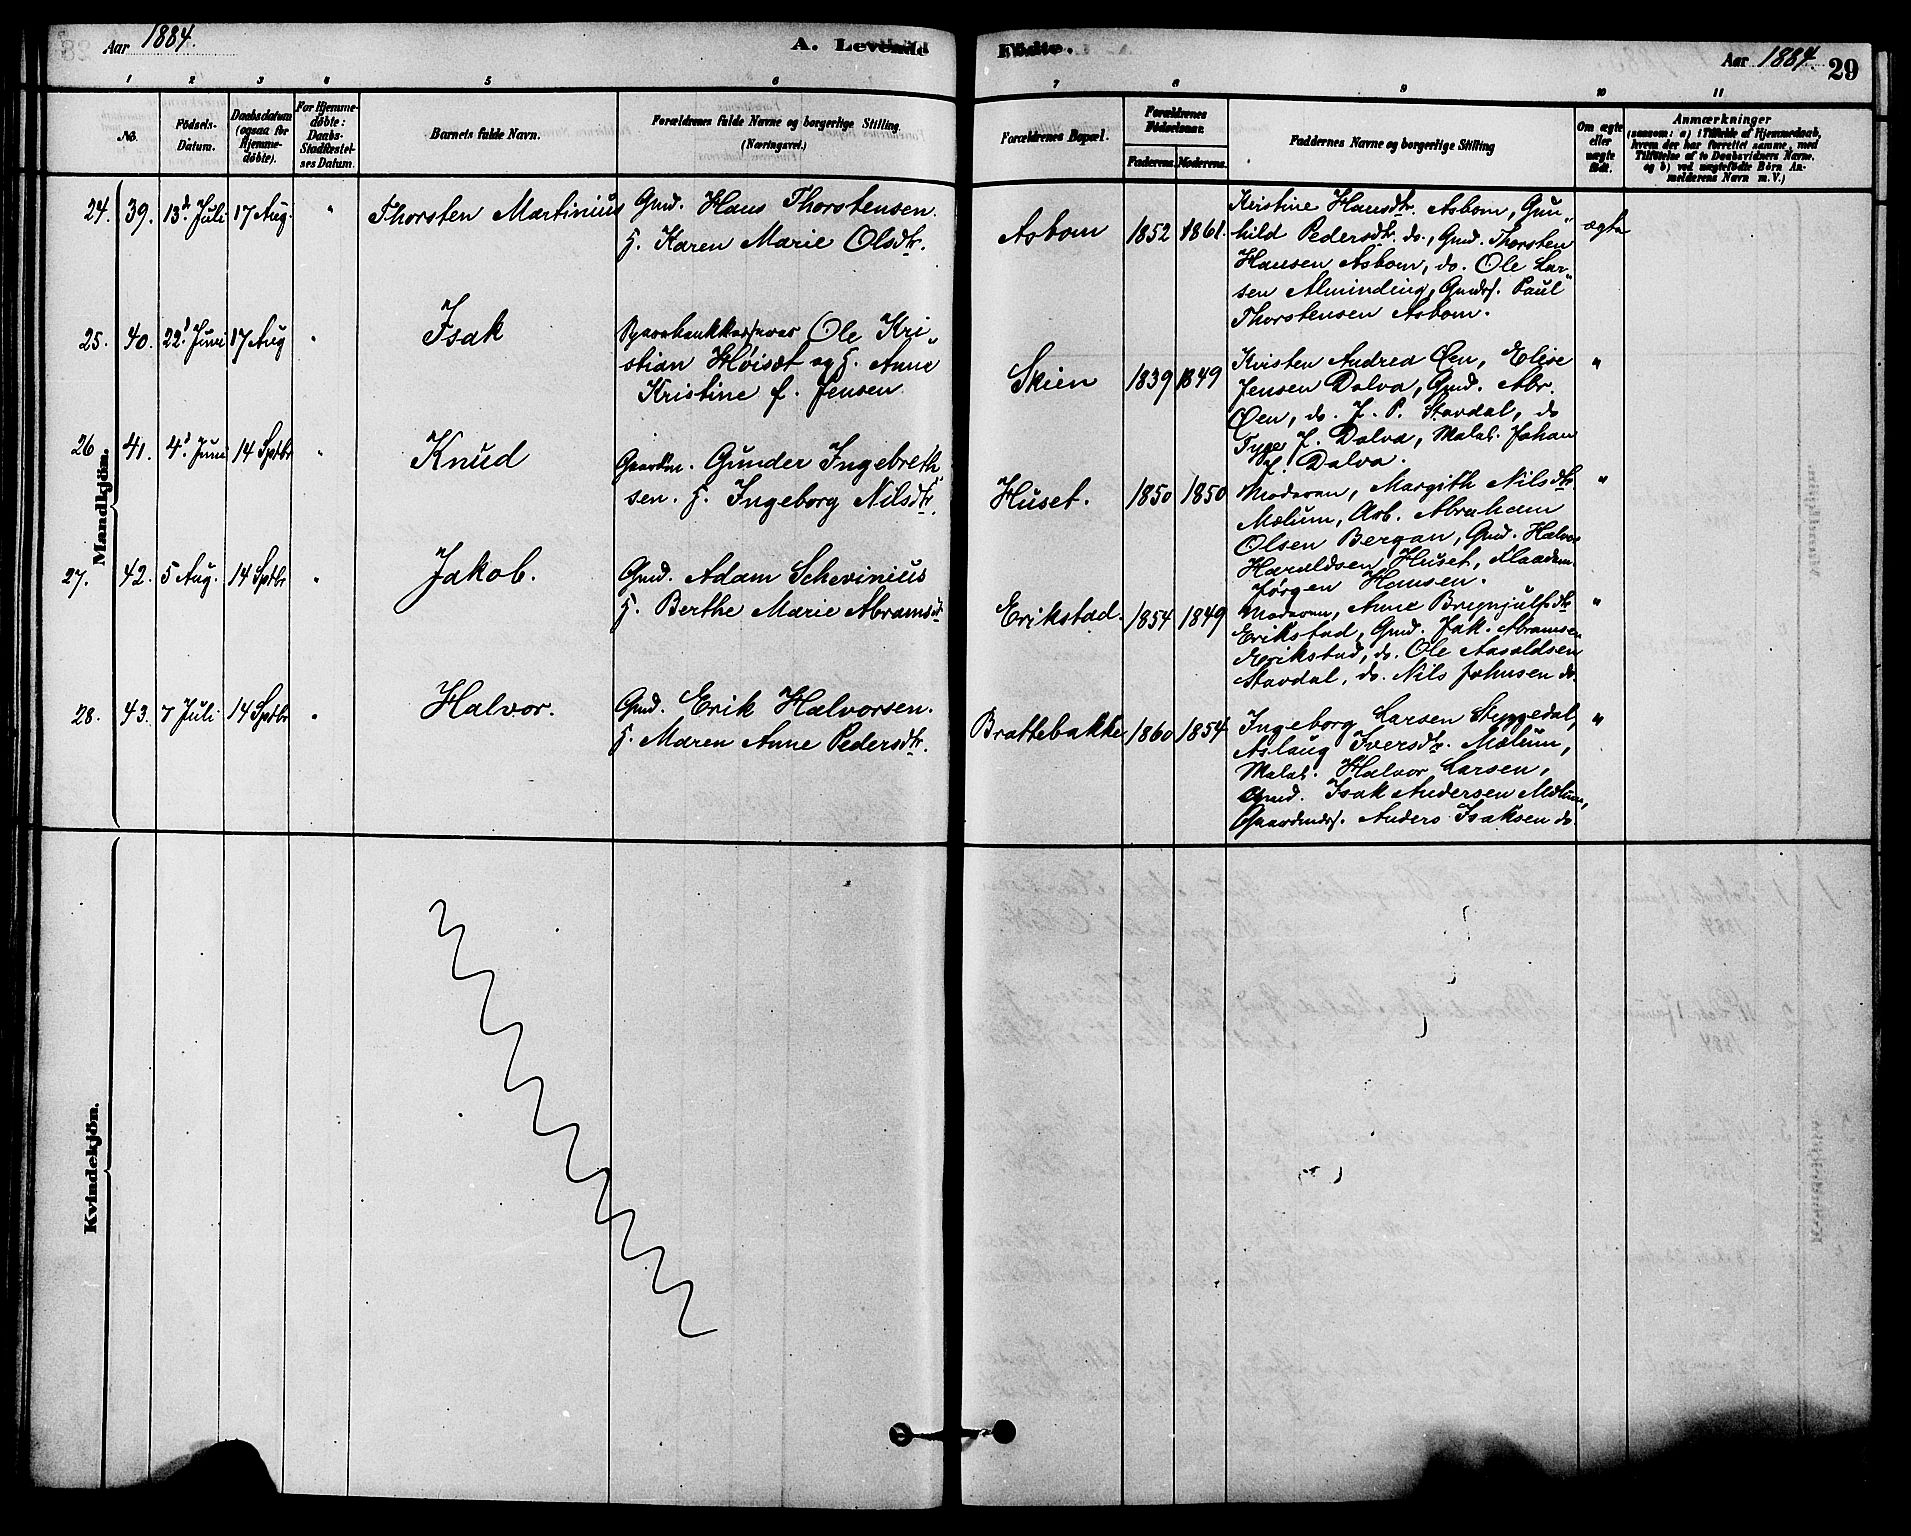 Aar 1884.
A. Levende Fødte.
Aar 1884. 29
1 2 3 4 5 6 7 8 9 10 11
No.
Fødsels-
Datum.
Daabsdatum
(ogsaa for
Hjemme-
døbte).
For Hjemme-
døbte:
Daabs-
Stadfæstel-
ses Datum.
Barnets fulde Navn.
Forældrenes fulde Navne og borgerlige Stilling
(Næringsvei.)
Forældrenes Bopæl.
Forældrenes
Fødselsaar.
Faderens. Moderens.
Faddernes Navne og borgerlige Stilling
Om ægte
eller
uægte
født.
Anmærkninger
(saasom: a) i Tilfælde af Hjemmedaab,
hvem der har forrettet samme, med
Tilføielse af to Daabsvidners Navne.
og b) ved uægtefødte Børn An-
melderens Navn m. V.)
Mandkjön.
24. 39. 13de Juli 17 Aug. " Thorsten Martinius
Gmd. Hans Thorstensen.
H. Karen Marie Olsdtr.
Asbom 1852 1861.
Kristine Hansdtr. Asbom, Gun-
hild Pedersdtr. do., Gmd. Thorsten
Hansen Asbom, do. Ole Lar-
sen Alminding, Gmds. Paul
Thorstensen Asbom.
ægte
25. 40. 22d Juni 17 Aug " Isak
Ole Kri-
stian Høisæt og H. Anne
Kristine f. Jensen
Skien 1839 1849
Kristen Andrea Øen, Elise
Jensen Dalva, Gmd. Abr.
Øen, do. J. P. Stavdal, do
Tyge J. Dalva, Malal. Johan
J. Dalva.
"
26 41. 4d Juni 14 Sptbr " Knud
Gaardm. Gunder Ingebreth
sen. H. Ingeborg Nilsdtr.
Huset. 1850 1850
Moderen, Margith Nilsdtr.
Mælum, Arb. Abraham
Olsen Bergan, Gmd. Halvor
Haraldsen Huset,
Jørgen Hansen.
"
27. 42. 5 Aug. 14 Sptbr " Jakob.
Gmd. Adam Schevinius
H. Berthe Marie Abramsdt
Erikstad. 1854 1849
Moderen, Anne Brynjulfsdtr
Erikstad, Gmd. Jak. Abramsen
Erikstad, do. Ole Aasoldsen
Stavdal, do. Nils Johnsen do.
"
28. 43. 7 Juli 14 Sptbr " Halvor.
Gmd. Erik Halvorsen.
H. Maren Anne Pedersdtr.
Brattebakke 1860 1854
Ingeborg Larsen Styggedal,
Aslaug Iversdtr. Mælum,
Malal. Halvor Larsen,
Gmd. Isak Andersen Mælum,
Gaardmds. Anders Isaksen do.
"
Kvindekjön.